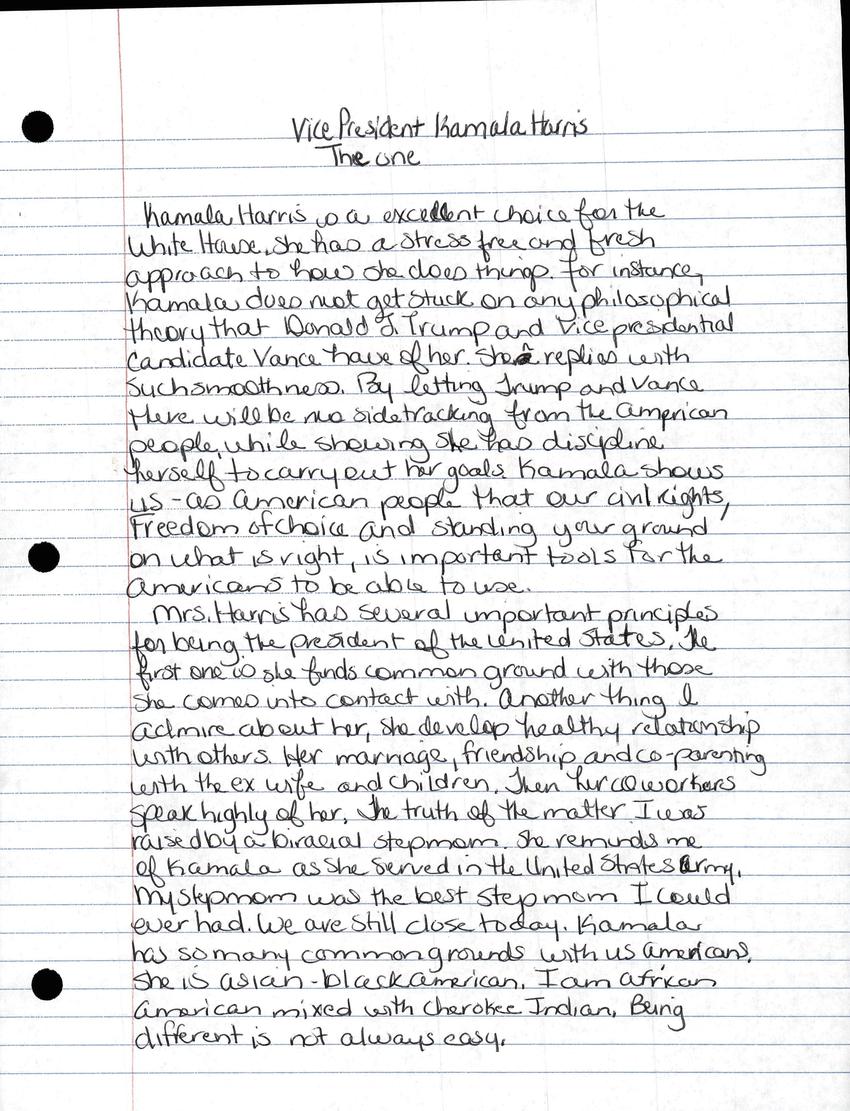 Vice President Kamala Harris
The one
Kamala Harris is a excellent choice for the
White House. She has a stress free and fresh
approach to how she does things. For instance,
Kamala does not get stuck on any philosophical
theory that Donald J. Trump and Vice presidential
candidate Vance have of her. She replies with
such smoothness. By letting Trump and Vance
there will be no sidetracking from the American
people, while showing she has discipline
herself to carry out her goals. Kamala shows
us - as American people that our civil Rights,
Freedom of choice and standing your ground
on what is right, is important tools for the
Americans to be able to use.
Mrs. Harris has several important principles
for being the president of the United States. The
first one is she finds common ground with those
she comes into contact with. Another thing I
admire about her, she develop healthy relationship
with others. Her marriage, friendship and co-parenting
with the ex wife and children. Then her coworkers
speak highly of her. The truth of the matter I was
raised by a biracial stepmom. She reminds me
of Kamala as she served in the United States Army.
My stepmom was the best stepmom I could
ever had. We are still close today. Kamala
has so many common grounds with us Americans.
She is asian-black american. I am african
American mixed with Cherokee Indian. Being
different is not always easy.